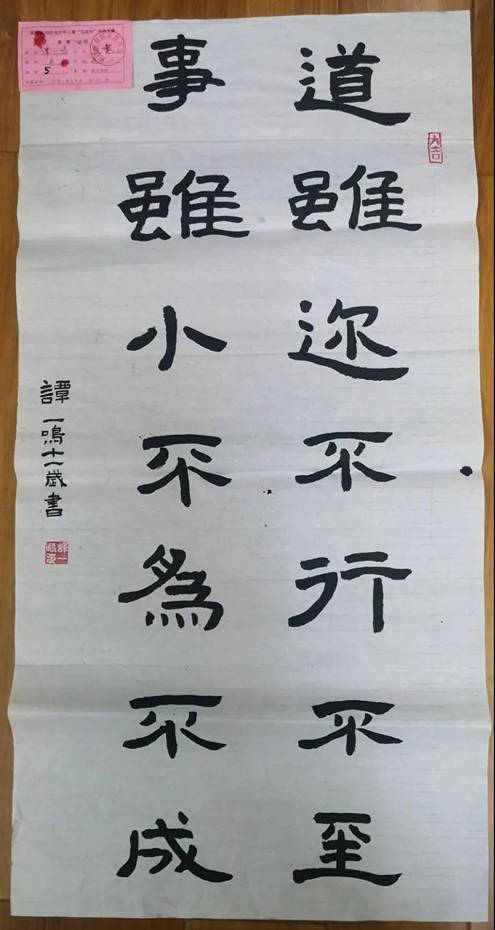 道雖迩不行不至
事雖小不為不成
譚一鳴十一歲書